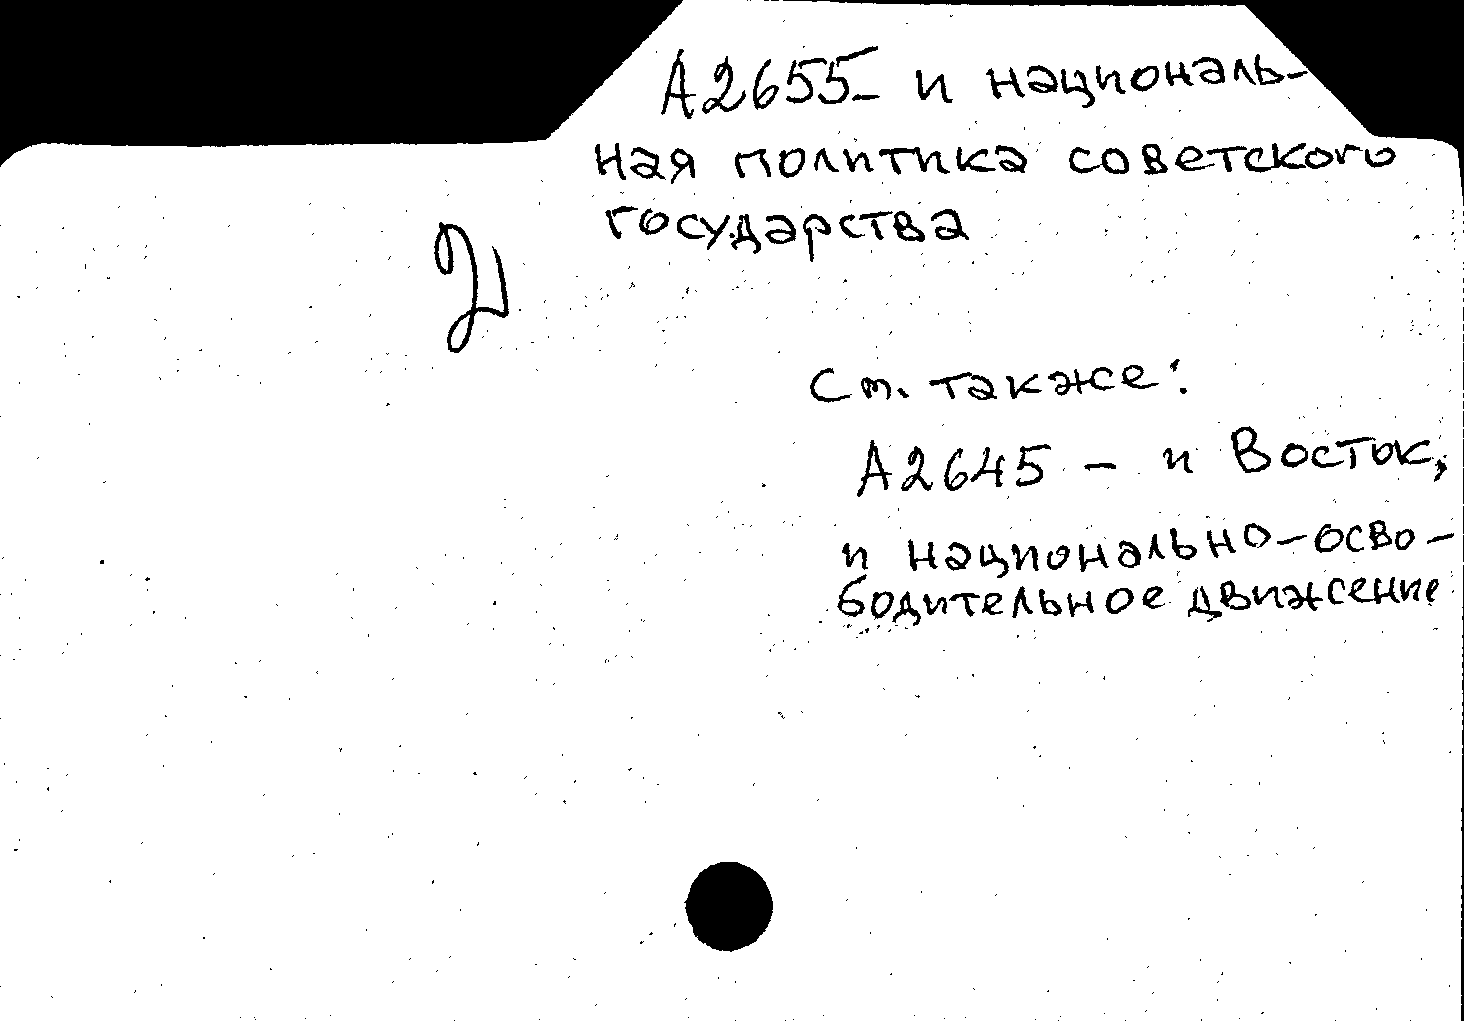 А2655- и националь-
ная политика советского
государства
См. также:
А2645 - и Восток,
и национально-осво-
бодительное движение